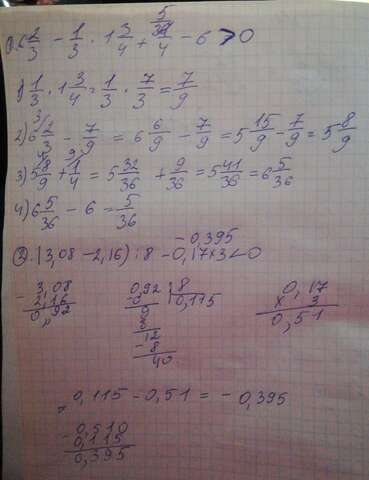 1). 6 2/3 - 1/3 · 1 3/4 + 1/4 - 6 > 0
5/36
1) 1/3 · 1 3/4 = 1/3 · 7/3 = 7/9
2) 6 2/3 - 7/9 = 6 6/9 - 7/9 = 5 15/9 - 7/9 = 5 8/9
3) 5 8/9 + 1/4 = 5 32/36 + 9/36 = 5 41/36 = 6 5/36
4) 6 5/36 - 6 = 5/36
-0,395
2). (3,08 - 2,16) : 8 - 0,17 × 3 < 0
- 3,08
2,16
0,92
0,92 | 8
0,115
9
8
12
- 8
40
0,17
× 3
0,51
= 0,115 - 0,51 = - 0,395
- 0,510
0,115
0,395